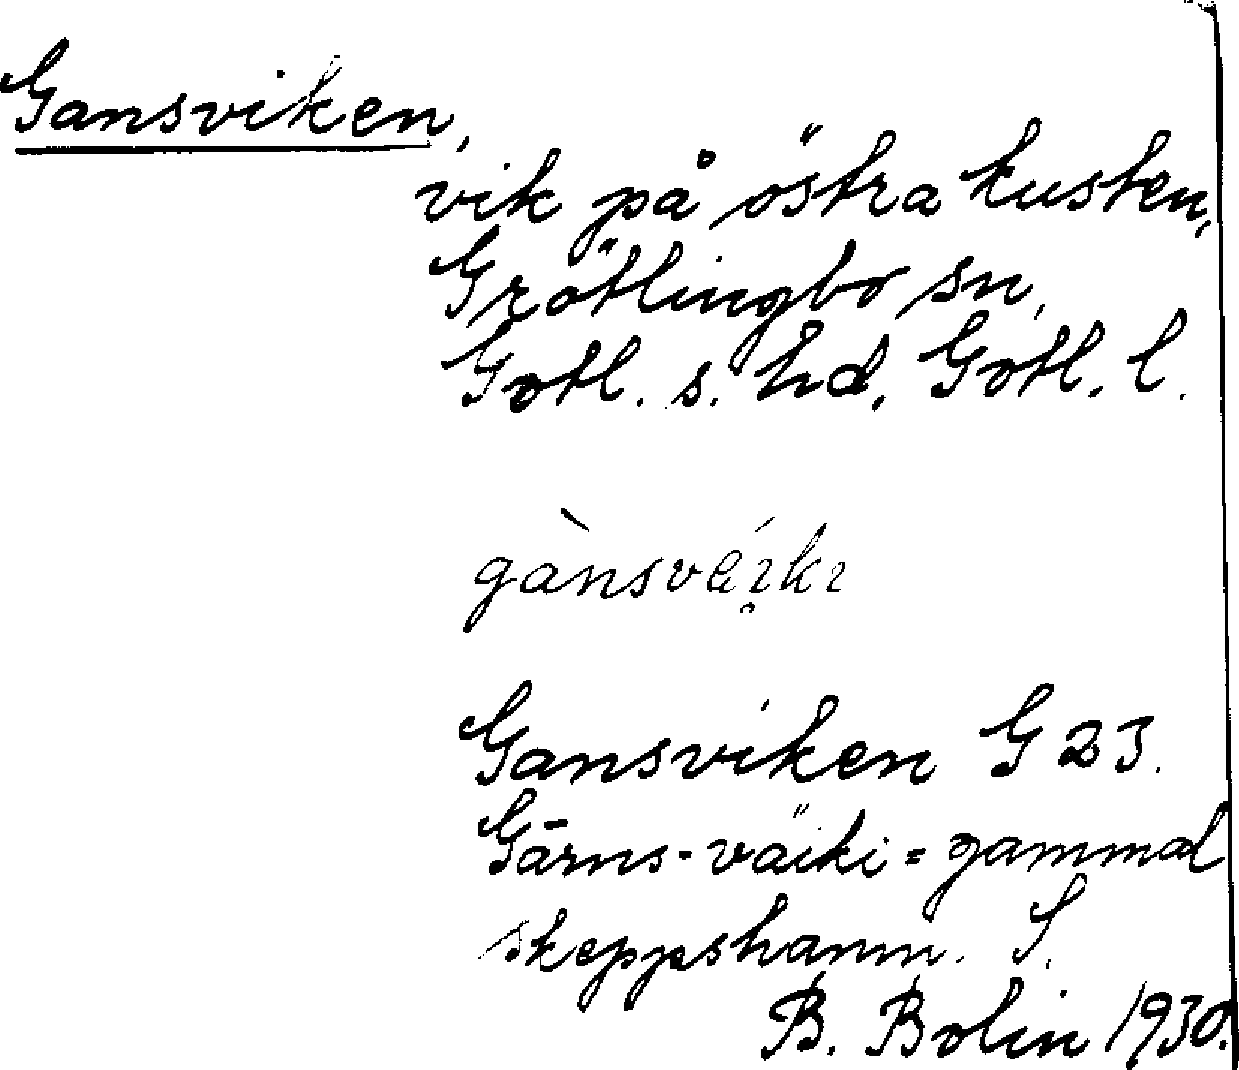 Gansviken,
vik på östra kusten,
Grötlingbo sn,
Gotl. s. hd, Gotl. l.
Gansviken G 23.
Gārns-väiki = gammal
skeppshamn. S.
B. Bolin 1930.